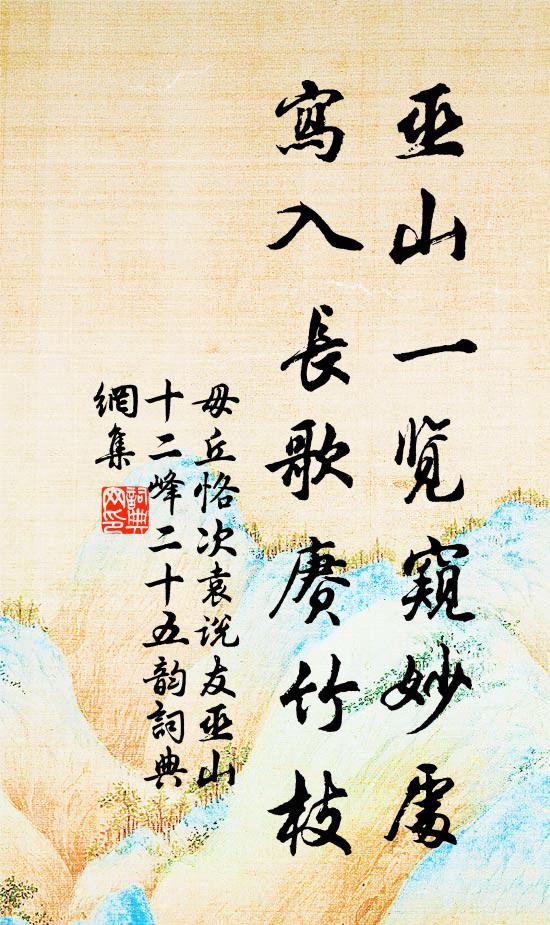 巫山一览窺妙處
寫入長歌賡竹枝
毋丘恪次袁说友巫山
十二峰二十五韵詞典
網集
詞典
网印